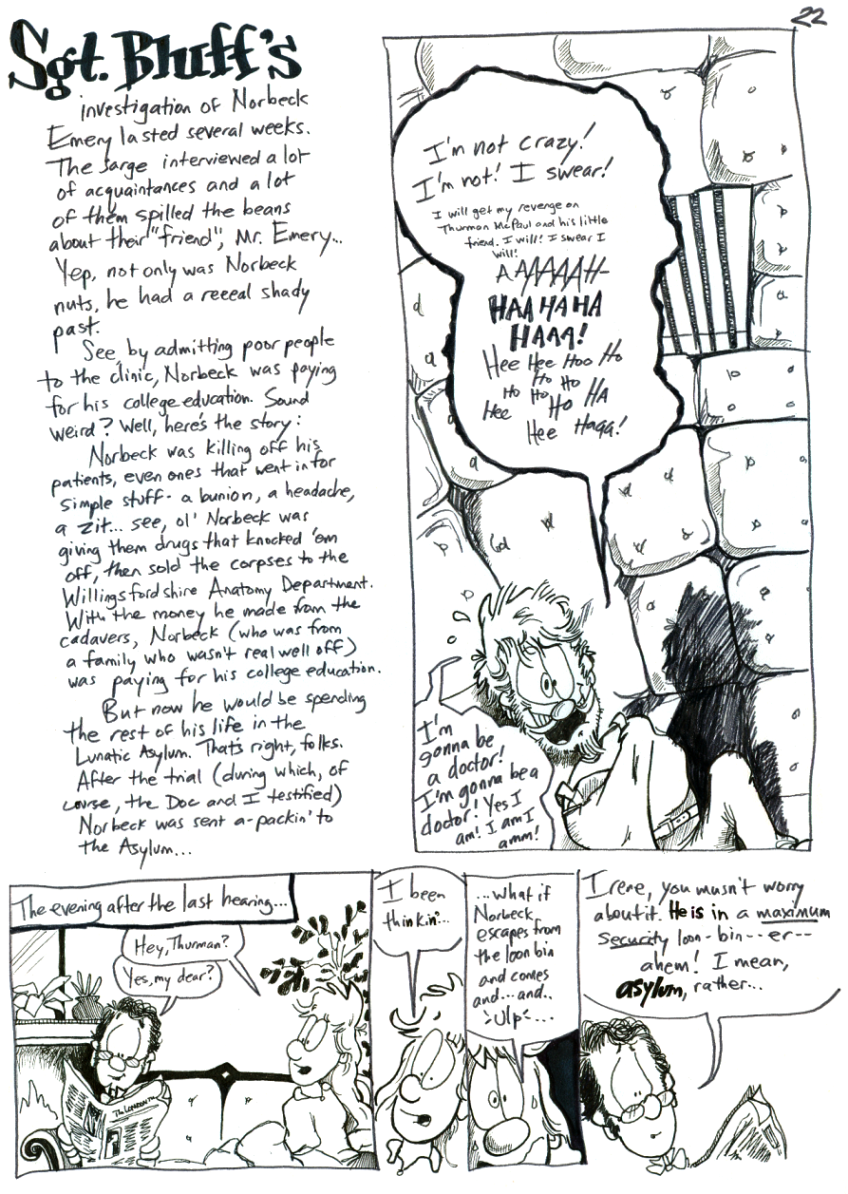 22
Sgt. Bluff's
investigation of Norbeck
Emery lasted several weeks.
The Sarge interviewed a lot
of acquaintances and a lot
of them spilled the beans
about their "friend", Mr. Emery...
Yep, not only was Norbeck
nuts, he had a reeeal shady
past.
See, by admitting poor people
to the clinic, Norbeck was paying
for his college education. Sound
weird? Well, here's the story:
Norbeck was killing off his
patients, even ones that went in for
simple stuff- a bunion, a headache,
a zit... see, ol' Norbeck was
giving them drugs that knocked 'em
off, then sold the corpses to the
Willingsfordshire Anatomy Department.
With the money he made from the
cadavers, Norbeck (who was from
a family who wasn't real well off)
was paying for his college education.
But now he would be spending
the rest of his life in the
Lunatic Asylum. That's right, folks.
After the trial (during which, of
course, the Doc and I testified)
Norbeck was sent a-packin' to
the Asylum...
I'm not crazy!
I'm not! I swear!
I will get my revenge on
Thurman McPaul and his little
friend. I will! I swear I
will!
AAAAAAH-
HAA HA HA
HAAA!
Hee Hee Hoo Ho
Ho Ho
Ho Ho Ho HA
Hee Ho
Hee Haaa!
I'm
gonna be
a doctor!
I'm gonna be a
doctor! Yes I
am! I am I
amm!
The evening after the last hearing...
Hey, Thurman?
Yes, my dear?
The London
I been
thinkin'...
...what if
Norbeck
escapes from
the loon bin
and comes
and...and..
Ulp...
Irene, you musn't worry
about it. He is in a maximum
security loon-bin--er--
ahem! I mean,
asylum, rather...